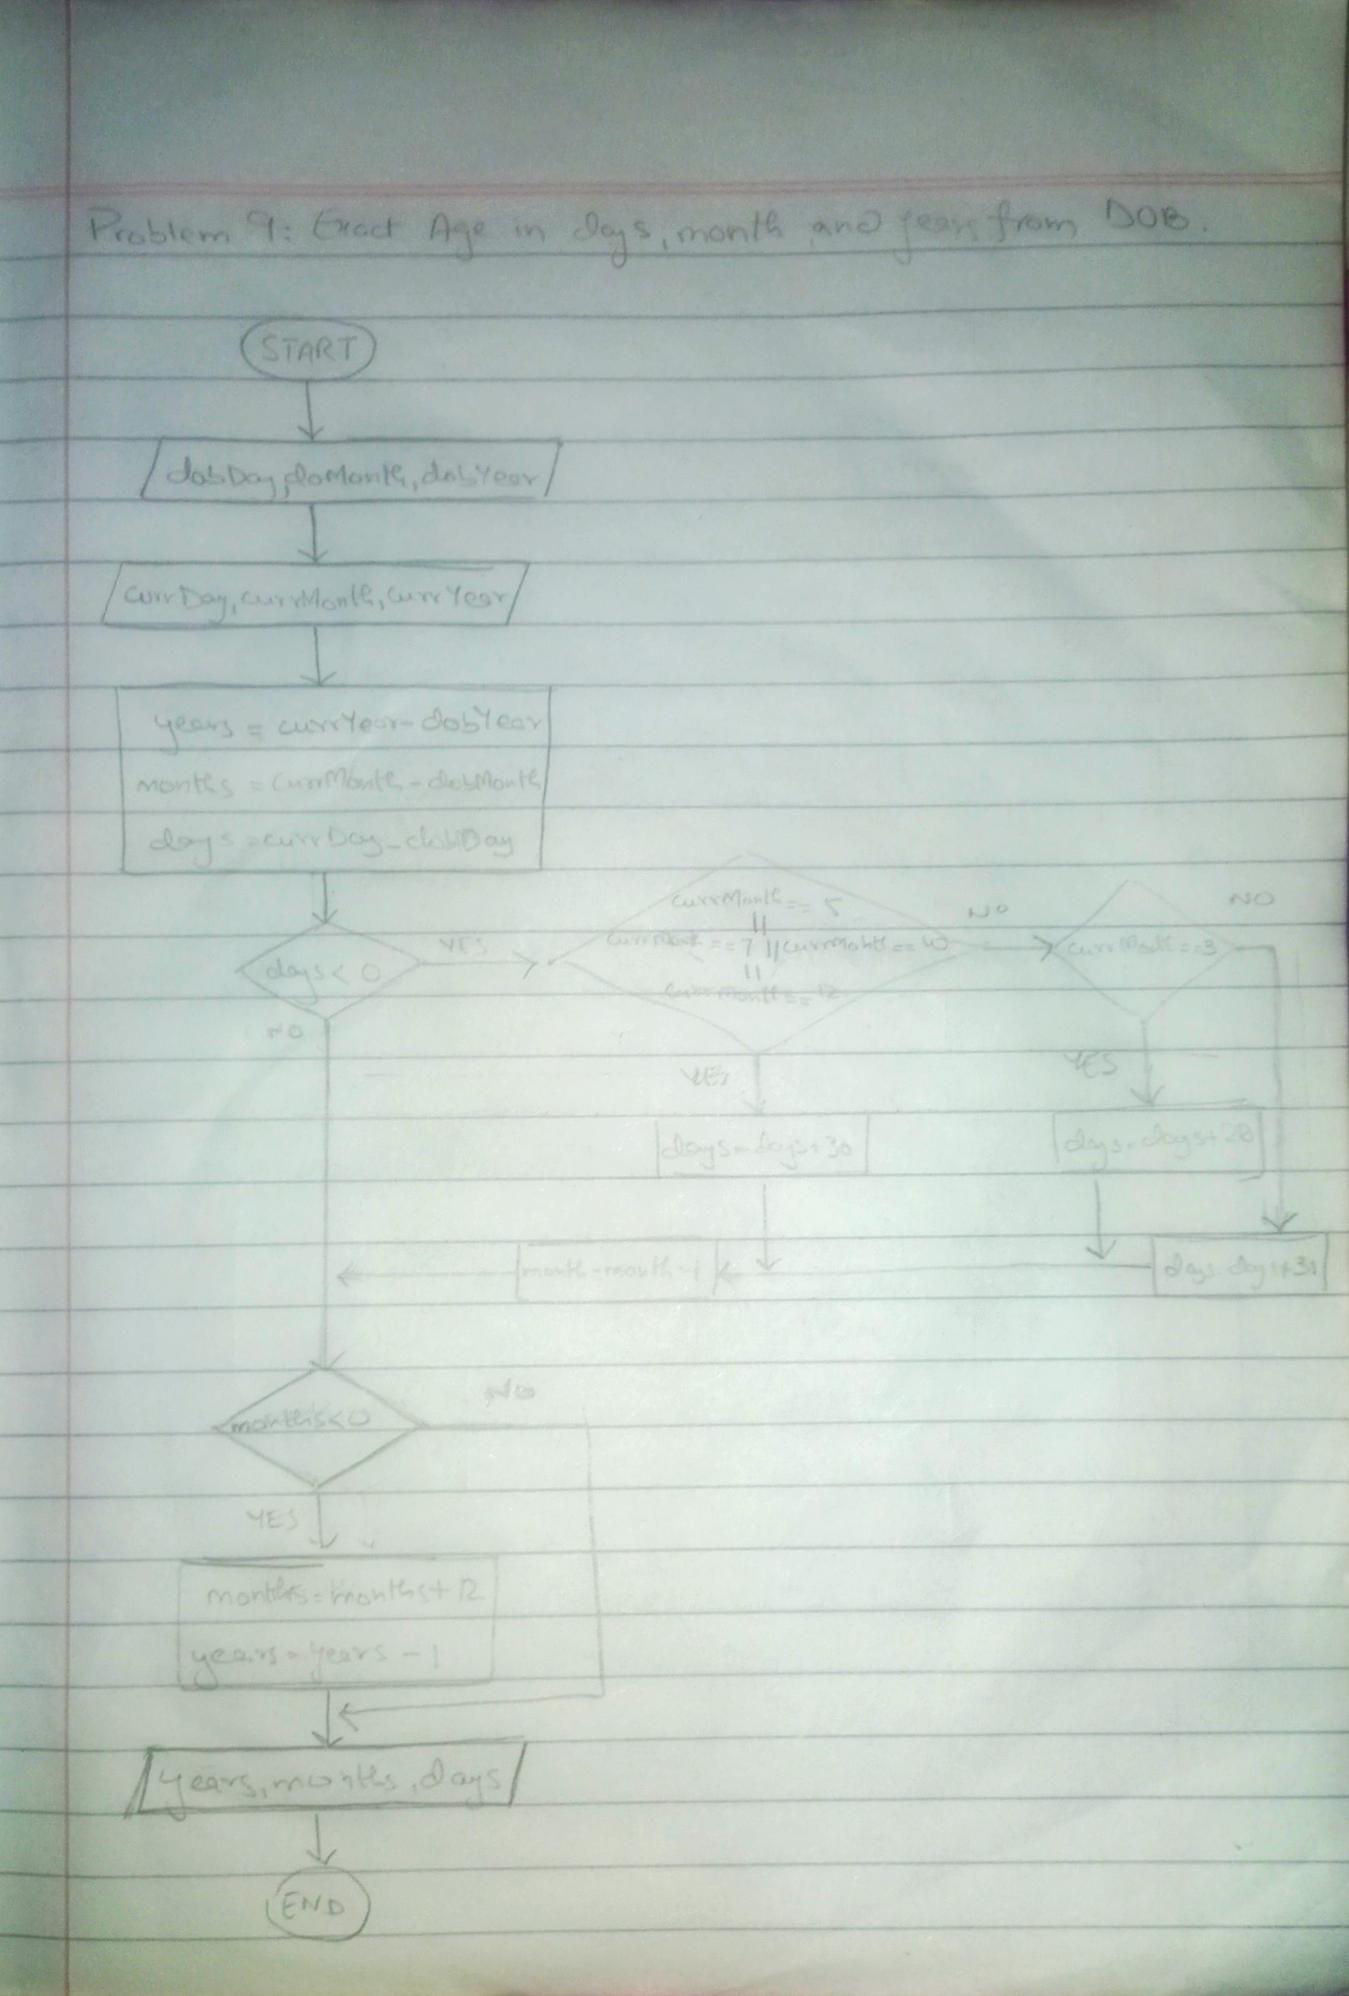 Problem 9: Exact Age in days, month and years from DOB.
START
dobDay, doMonth, dobYear
currDay, currMonth, currYear
years = currYear - dobYear
months = currMonth - dobMonth
days = currDay - dobDay
days < 0
YES
NO
currMonth == 5
||
currMonth == 7 || currMonth == 10
||
currMonth == 12
NO
YES
currMonth == 3
NO
YES
days = days + 30
days = days + 28
days = days + 31
month = month - 1
months < 0
NO
YES
months = months + 12
years = years - 1
years, months, days
END